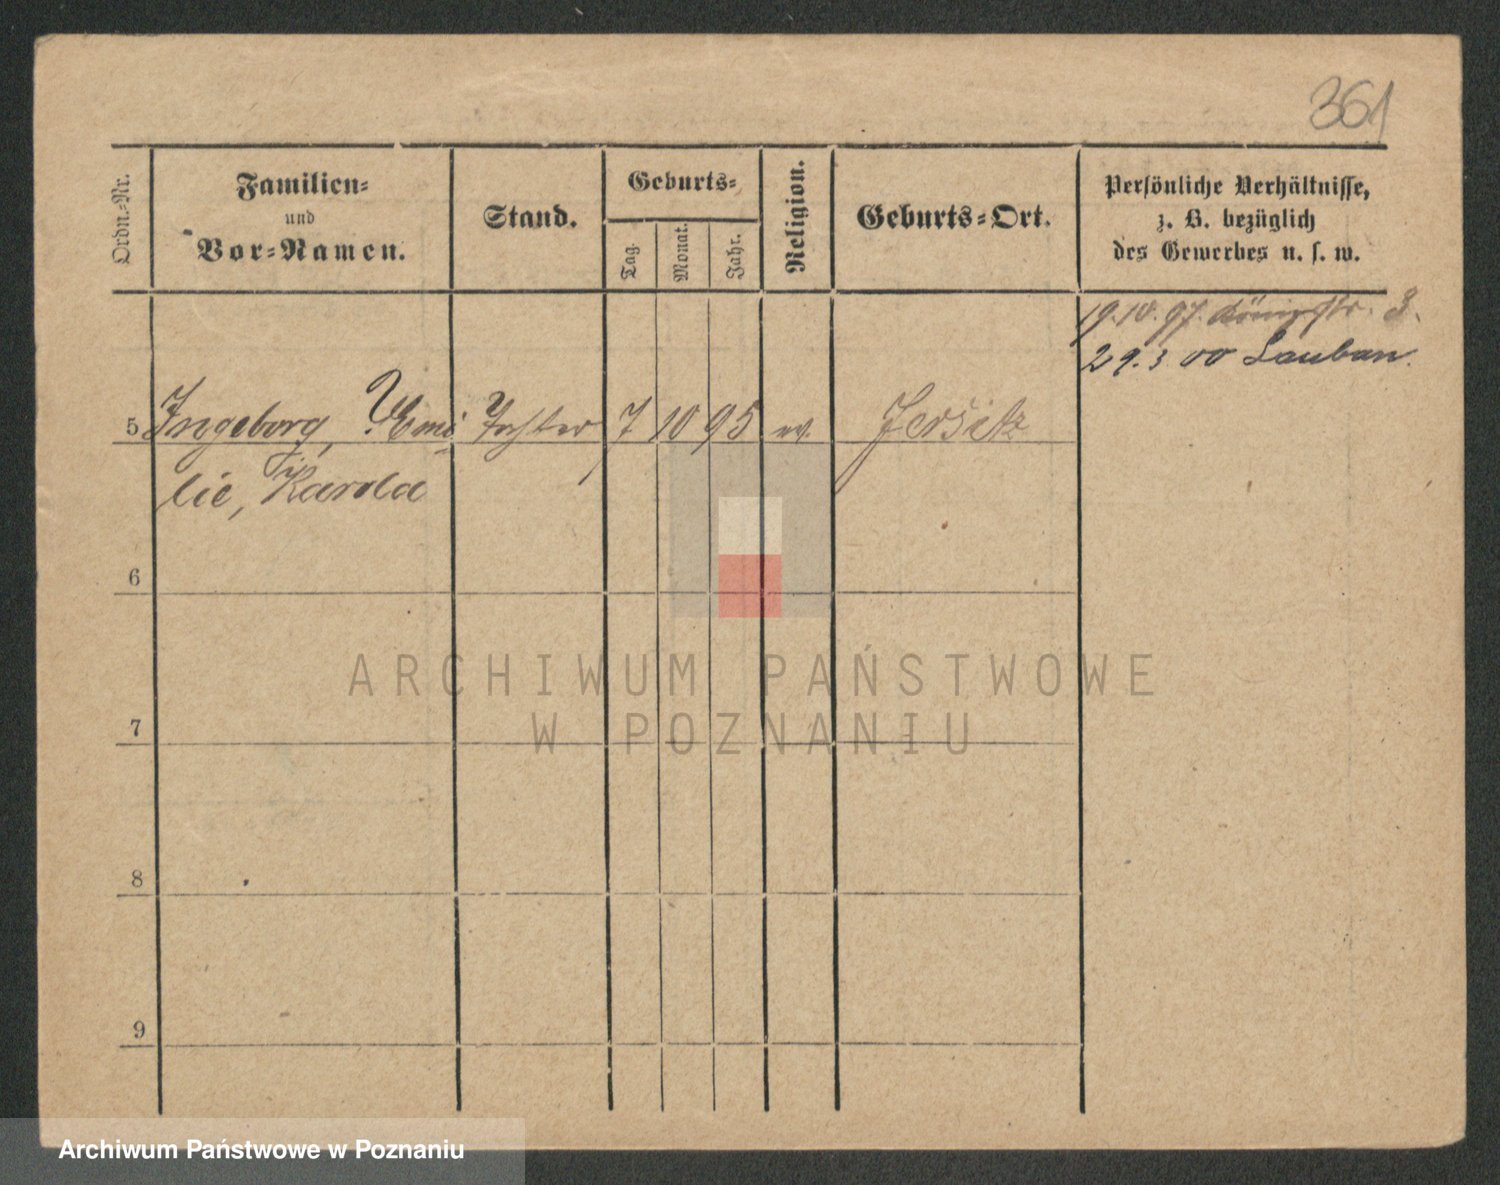 361
Ordn.-Nr.
Familien-
und
Vor-Namen.
Stand.
Geburts-
Tag.
Monat.
Jahr.
Religion.
Geburts-Ort.
Persönliche Verhältnisse,
z. B. bezüglich
des Gewerbes u. s. w.
19.10.97. Königstr. 3.
29.3 00 Lauban.
5 Ingeborg, Emi- Tochter 7 10 95 ev. Jersitz
lie, Karola
6
7
8
9
ARCHIWUM PAŃSTWOWE
W POZNANIU
Archiwum Państwowe w Poznaniu